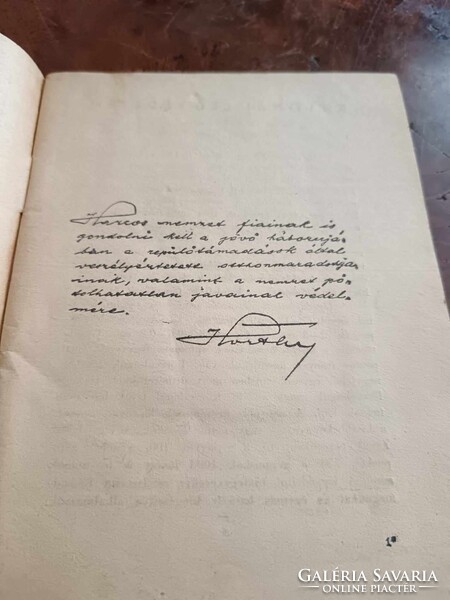 Harcos nemzet fiainak is
gondolni kell a jövő háborujá-
ban a repülőtámadások által
veszélyeztetett otthonmaradottja-
inak, valamint a nemzet pó-
tolhatatlan javainak védel-
mére.
Horthy
1*
GALÉRIA SAVARIA
ONLINE PIACTÉR